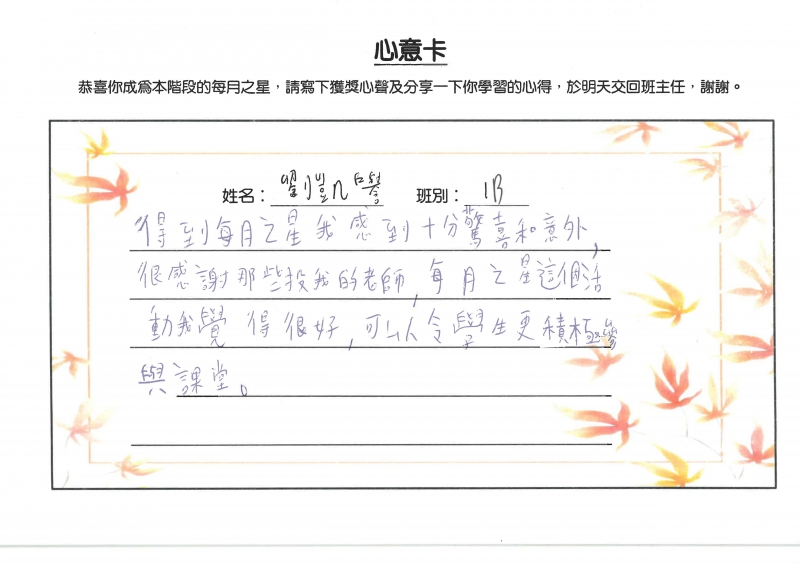 心意卡
恭喜你成為本階段的每月之星，請寫下獲獎心聲及分享一下你學習的心得，於明天交回班主任，謝謝。
姓名： 劉凱譽 班別： 1B
得到每月之星我感到十分驚喜和意外,
很感謝那些投我的老師,每月之星這個活
動我覺得很好,可以令學生更積極參
與課堂。